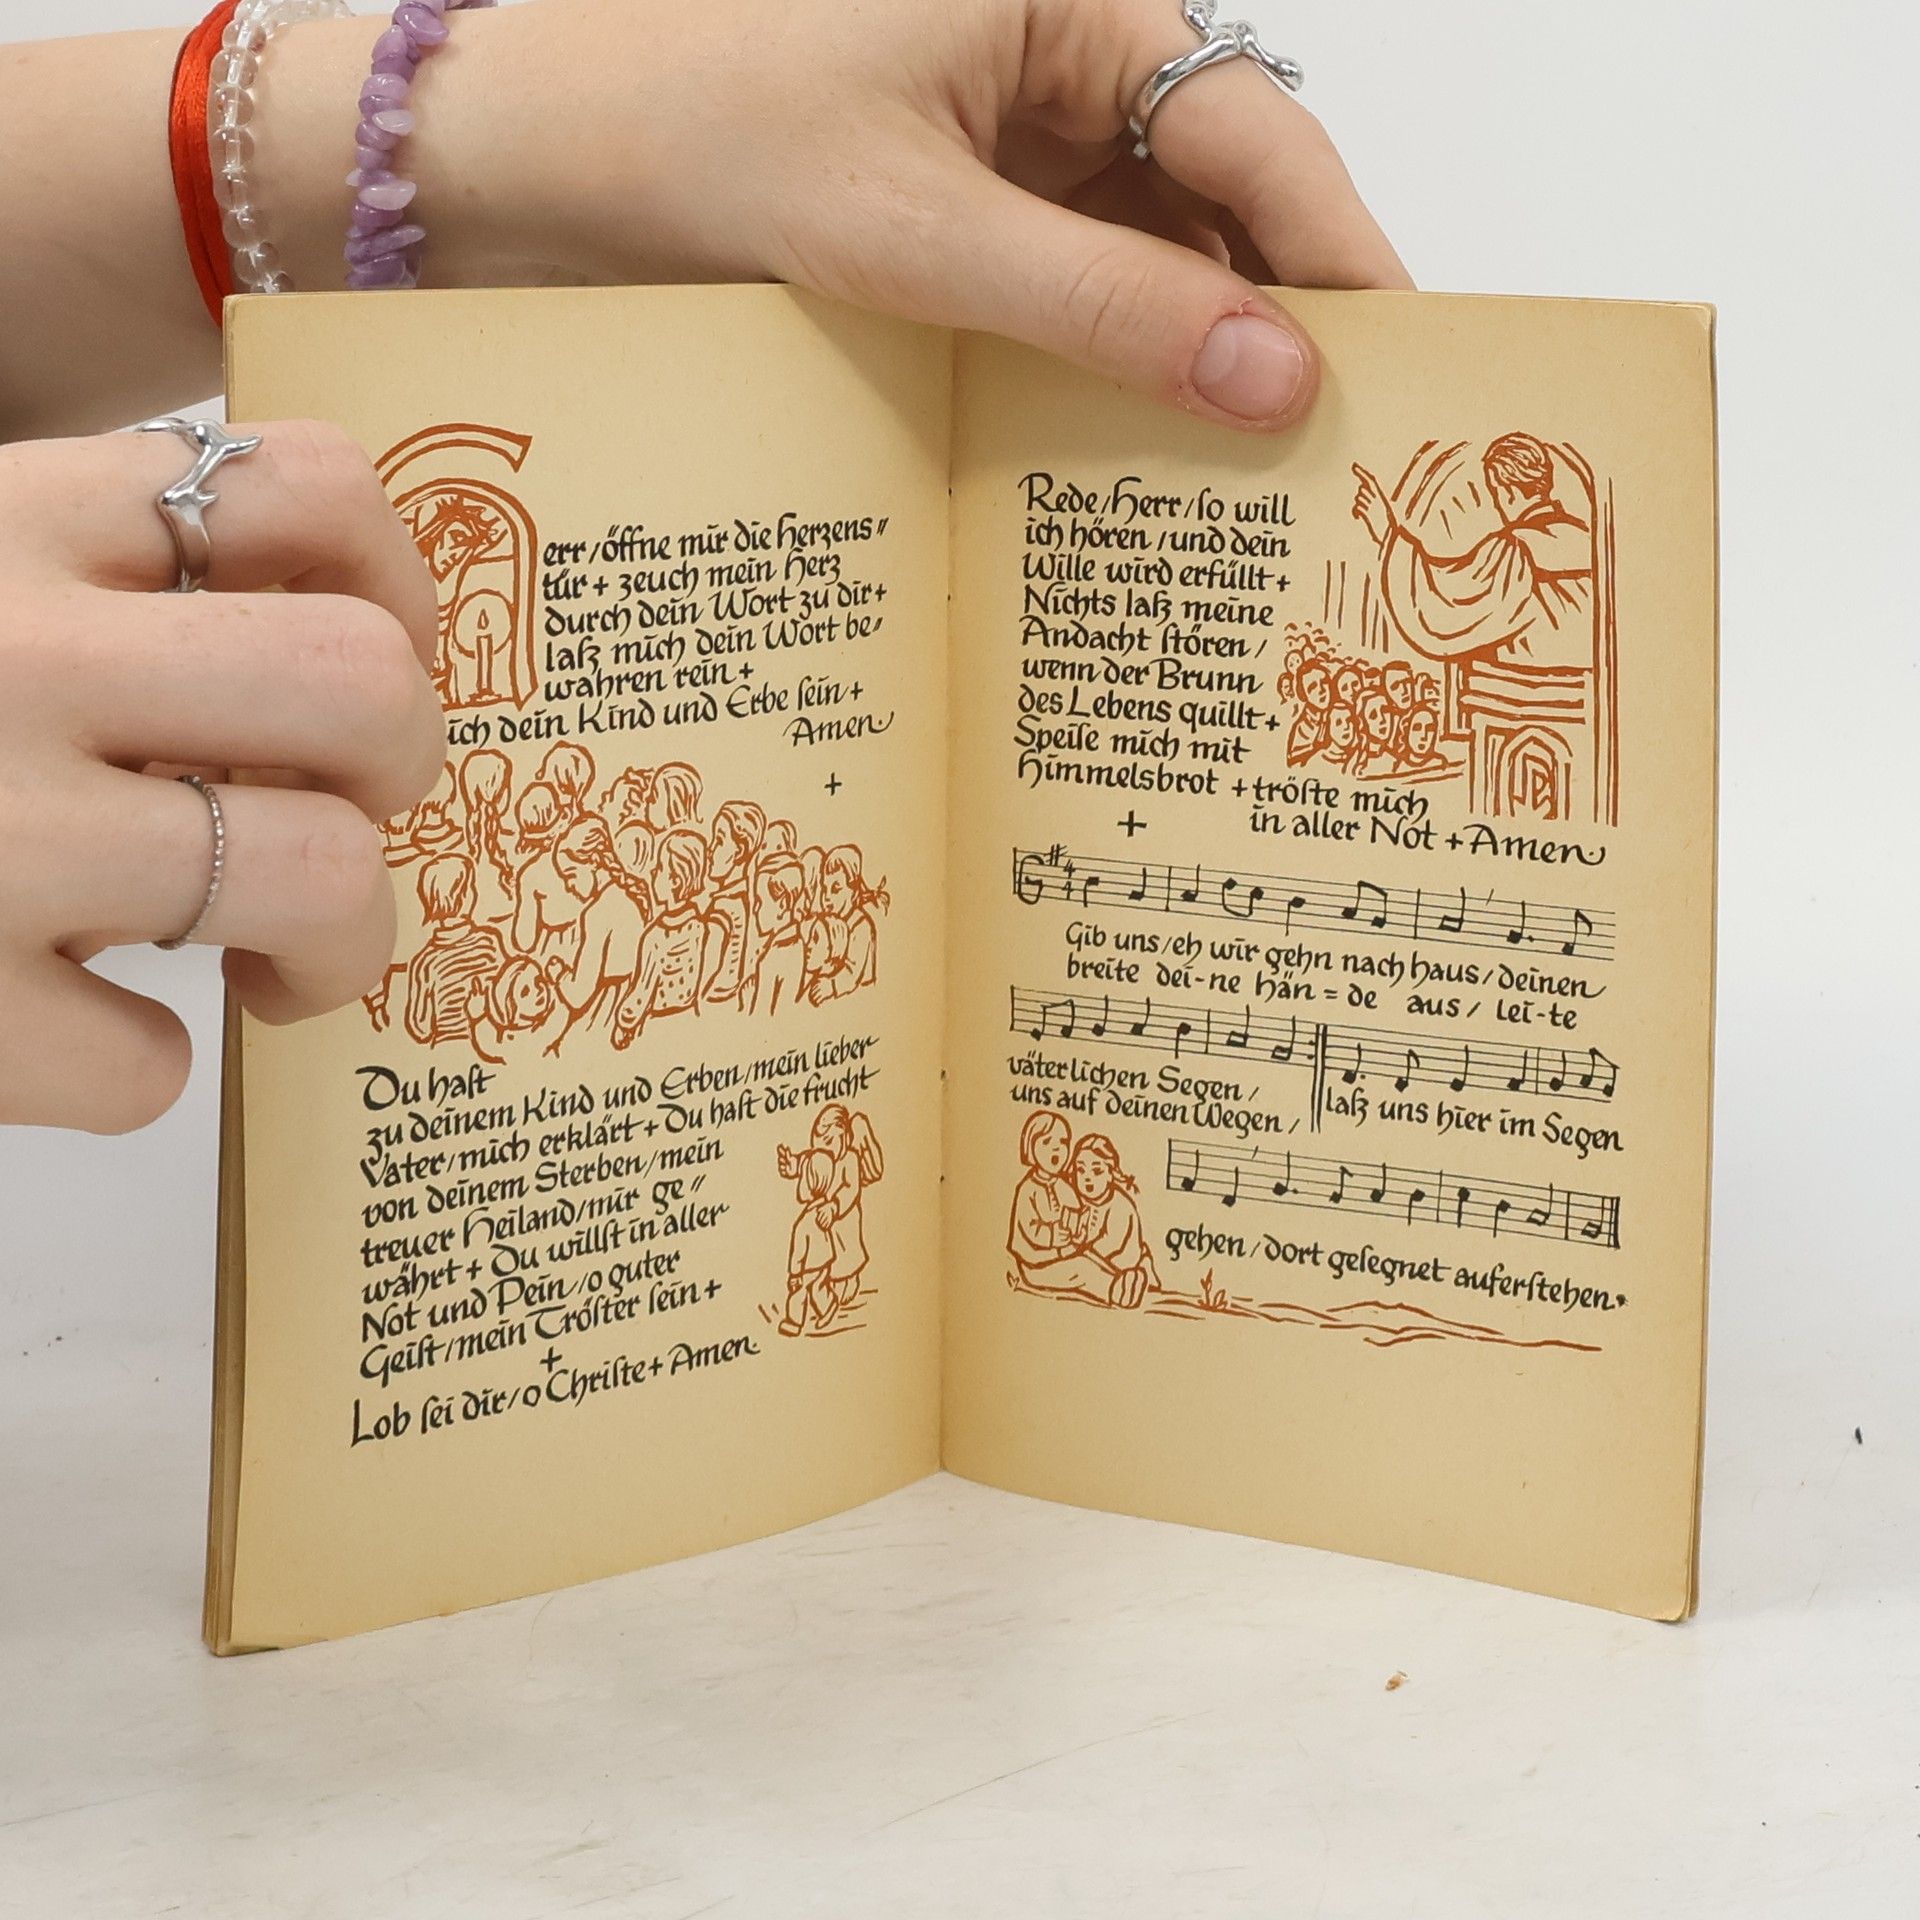 err/öffne mir die Herzens⸗
tür + zeuch mein Herz
durch dein Wort zu dir +
laß mich dein Wort be⸗
wahren rein +
ich dein Kind und Erbe ſein +
Amen.
+
Du haſt
zu deinem Kind und Erben/mein lieber
Vater/mich erklärt + Du haſt die Frucht
von deinem Sterben/mein
treuer Heiland/mir ge⸗
währt + Du willſt in aller
Not und Pein/o guter
Geiſt/mein Tröſter ſein +
+
Lob ſei dir/o Chriſte + Amen.
Rede/Herr/ſo will
ich hören/und dein
Wille wird erfüllt +
Nichts laß meine
Andacht ſtören/
wenn der Brunn
des Lebens quillt +
Speiſe mich mit
Himmelsbrot + tröſte mich
+ in aller Not + Amen.
Gib uns/eh wir gehn nach haus/deinen
breite dei-ne Hän=de aus/ lei-te
väterlichen Segen/
uns auf deinen Wegen/
laß uns hier im Segen
gehen/dort geſegnet auferſtehen.